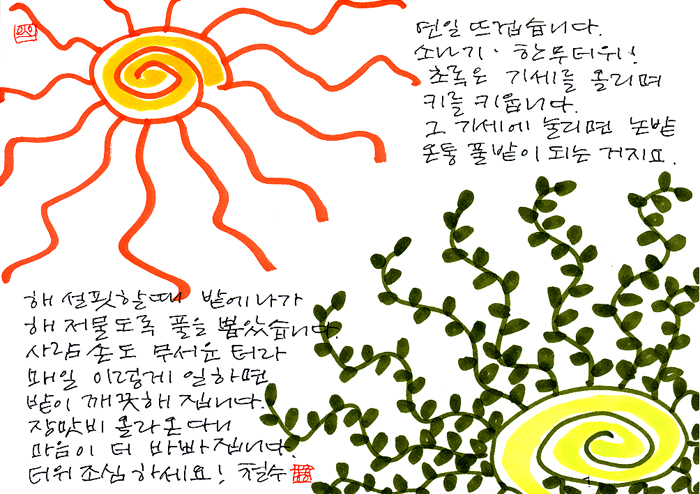 연일 뜨겁습니다.
소나기·한무더위!
초록은 기세를 올리며
키를 키웁니다.
그 기세에 눌리면 논밭
온통 풀밭이 되는 거지요.
해 설핏할때 밭에나가
해 저물도록 풀을 뽑았습니다.
사람 손도 무서운 터라
매일 이렇게 일하면
밭이 깨끗해 집니다.
장맛비 올라온다니
마음이 더 바빠집니다.
더위 조심하세요! 철수